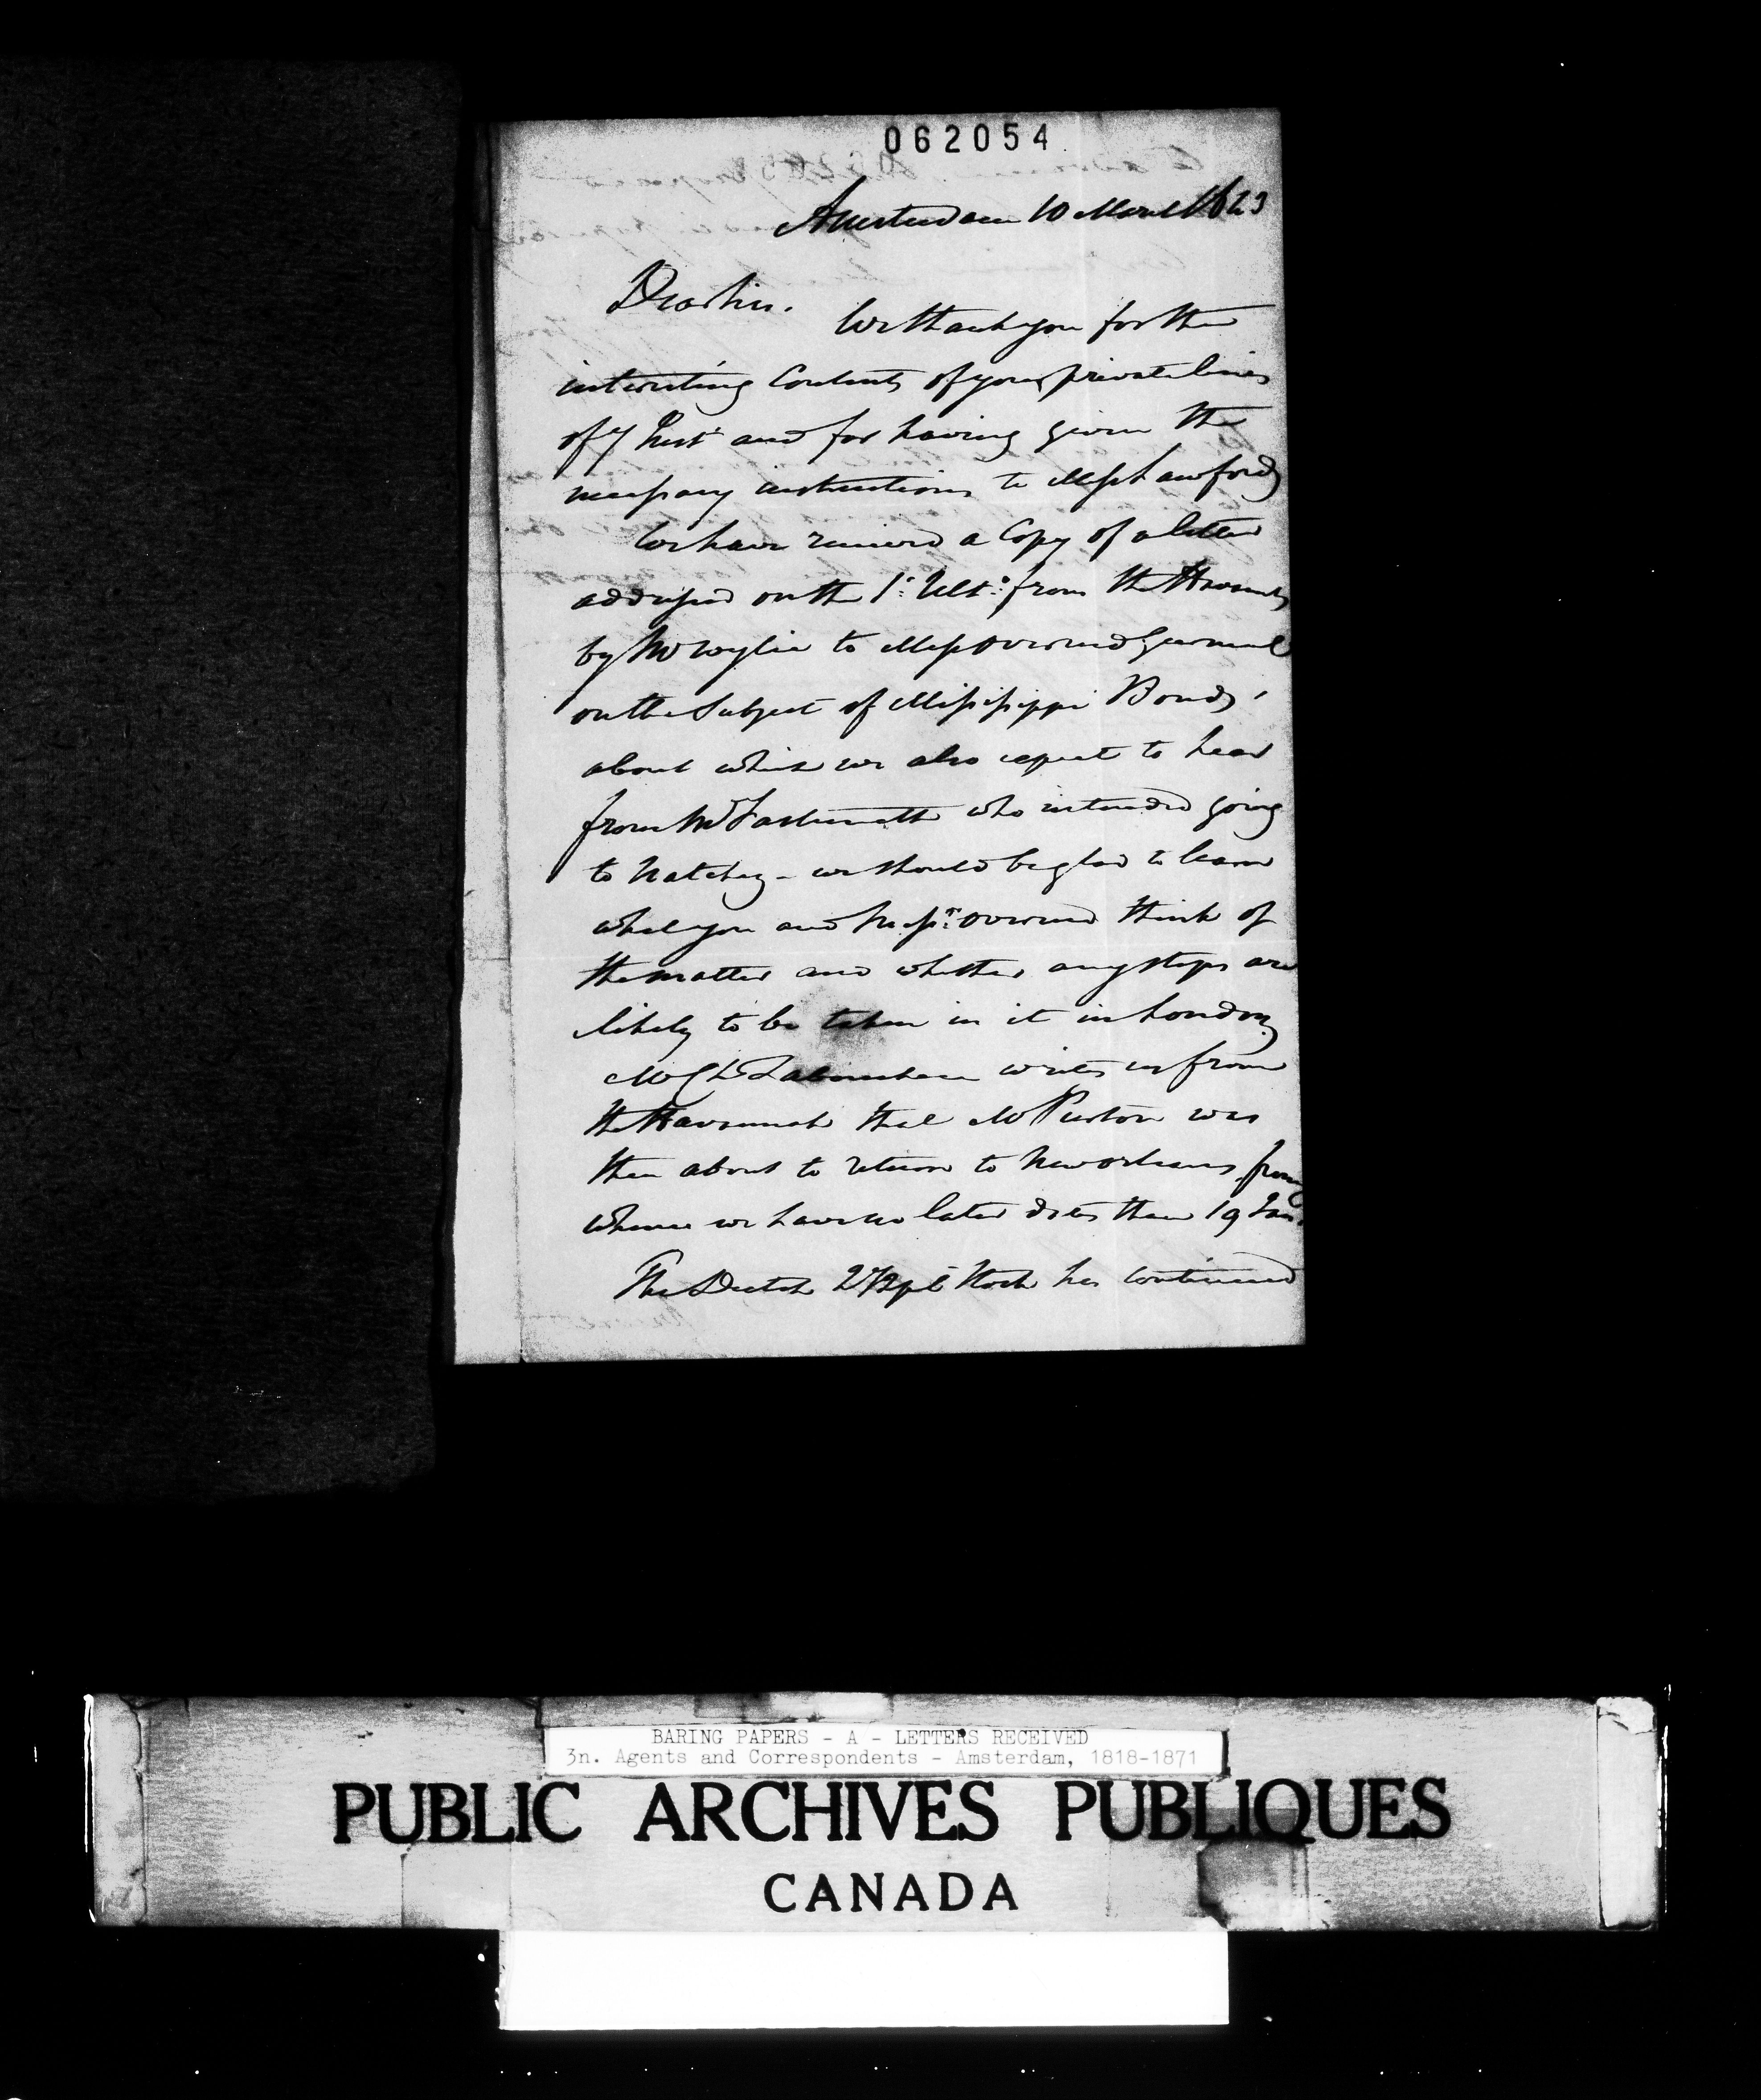 062054
Amsterdam 10 March 1843
Dear Sir. We thank you for the
interesting Contents of your private lines
of 7 Inst: and for having given the
necessary instructions to Messrs Lawfords
We have received a Copy of a letter
addressed on the 1: Ult:o from the Havannah
by Mr Wylie to Messrs Overend Gurney
on the Subject of Mississippi Bonds,
about which we also expect to hear
from Mr who intended going
to Natchez - we should be glad to learn
what you and Messrs: Overend think of
the matter and whether any steps are
likely to be taken in it in London.
Mr writes us from
the Havannah that Mr was
then about to return to New Orleans from
whence we have no later dates than 19 Jan.
The Dutch 2 1/2 pC Stock has continued
BARING PAPERS - A - LETTERS RECEIVED
3n. Agents and Correspondents - Amsterdam, 1818-1871
PUBLIC ARCHIVES PUBLIQUES
CANADA